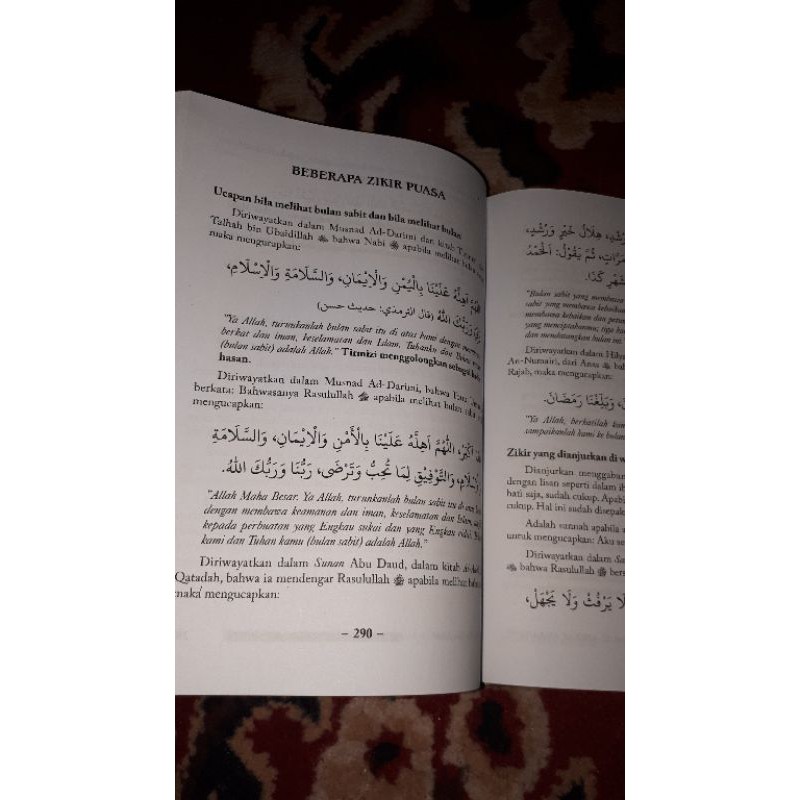 BEBERAPA ZIKIR PUASA
Ucapan bila melihat bulan sabit dan bila melihat bulan
Diriwayatkan dalam Musnad Ad-Darimi dan kitab
Talhah bin Ubaidillah ﷺ bahwa Nabi ﷺ apabila melihat
maka mengucapkan:
اَهِلَّهُ عَلَيْنَا بِالْيُمْنِ وَالْاِيْمَانِ، وَالسَّلَامَةِ وَالْاِسْلَامِ،
وَرَبُّكَ اللّٰهُ (قال الترمذي: حديث حسن)
"Ya Allah, turunkanlah bulan sabit itu di atas kami dengan
berkat dan iman, keselamatan dan Islam. Tuhanku dan
(bulan sabit) adalah Allah." Tirmizi menggolongkan sebagai
hasan.
Diriwayatkan dalam Musnad Ad-Darimi, bahwa
berkata: Bahwasanya Rasulullah ﷺ apabila melihat bulan
mengucapkan:
اَكْبَرُ، اَللّٰهُمَّ اَهِلَّهُ عَلَيْنَا بِالْاَمْنِ وَالْاِيْمَانِ، وَالسَّلَامَةِ
وَالتَّوْفِيْقِ لِمَا تُحِبُّ وَتَرْضَى، رَبُّنَا وَرَبُّكَ اللّٰهُ.
"Allah Maha Besar. Ya Allah, turunkanlah bulan sabit itu di
dengan membawa keamanan dan iman, keselamatan dan Islam,
kepada perbuatan yang Engkau sukai dan yang Engkau
kami dan Tuhan kamu (bulan sabit) adalah Allah."
Diriwayatkan dalam Sunan Abu Daud, dalam kitab
Qatadah, bahwa ia mendengar Rasulullah ﷺ apabila melihat
maka mengucapkan:
– 290 –
هِلَالُ خَيْرٍ وَرُشْدٍ،
ثُمَّ يَقُوْلُ: اَلْحَمْدُ
شَهْرِ كَذَا.
"Bulan sabit yang membawa
sabit yang membawa
membawa kebaikan dan
yang menciptakanmu; tiga
dan mendatangkan bulan ini.
Diriwayatkan dalam
An-Numairi, dari Anas
Rajab, maka mengucapkan:
وَبَلِّغْنَا رَمَضَانَ.
"Ya Allah, berkatilah
sampaikanlah kami ke
Zikir yang dianjurkan di
Dianjurkan
dengan lisan seperti dalam
hati saja, sudah cukup.
cukup. Hal ini sudah
Adalah sunnah apabila
untuk mengucapkan: Aku
Diriwayatkan dalam
ﷺ bahwa Rasulullah ﷺ
يَرْفُثْ وَلَا يَجْهَلْ،